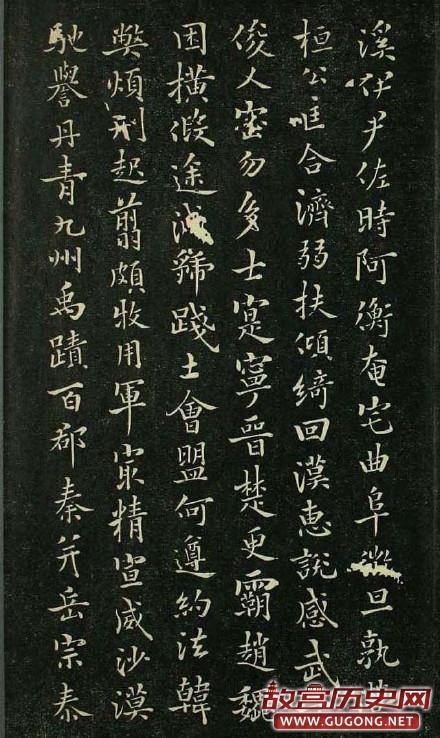 溪伊尹佐時阿衡奄宅曲阜微旦孰
桓公匡合濟弱扶傾綺回漢惠說感武
俊乂密勿多士寔寧晉楚更霸趙魏
困橫假途滅虢踐土會盟何遵約法韓
弊煩刑起翦頗牧用軍㝡精宣威沙漠
馳譽丹青九州禹蹟百郡秦并岳宗泰
故宫历史网
WWW.GUGONG.NET